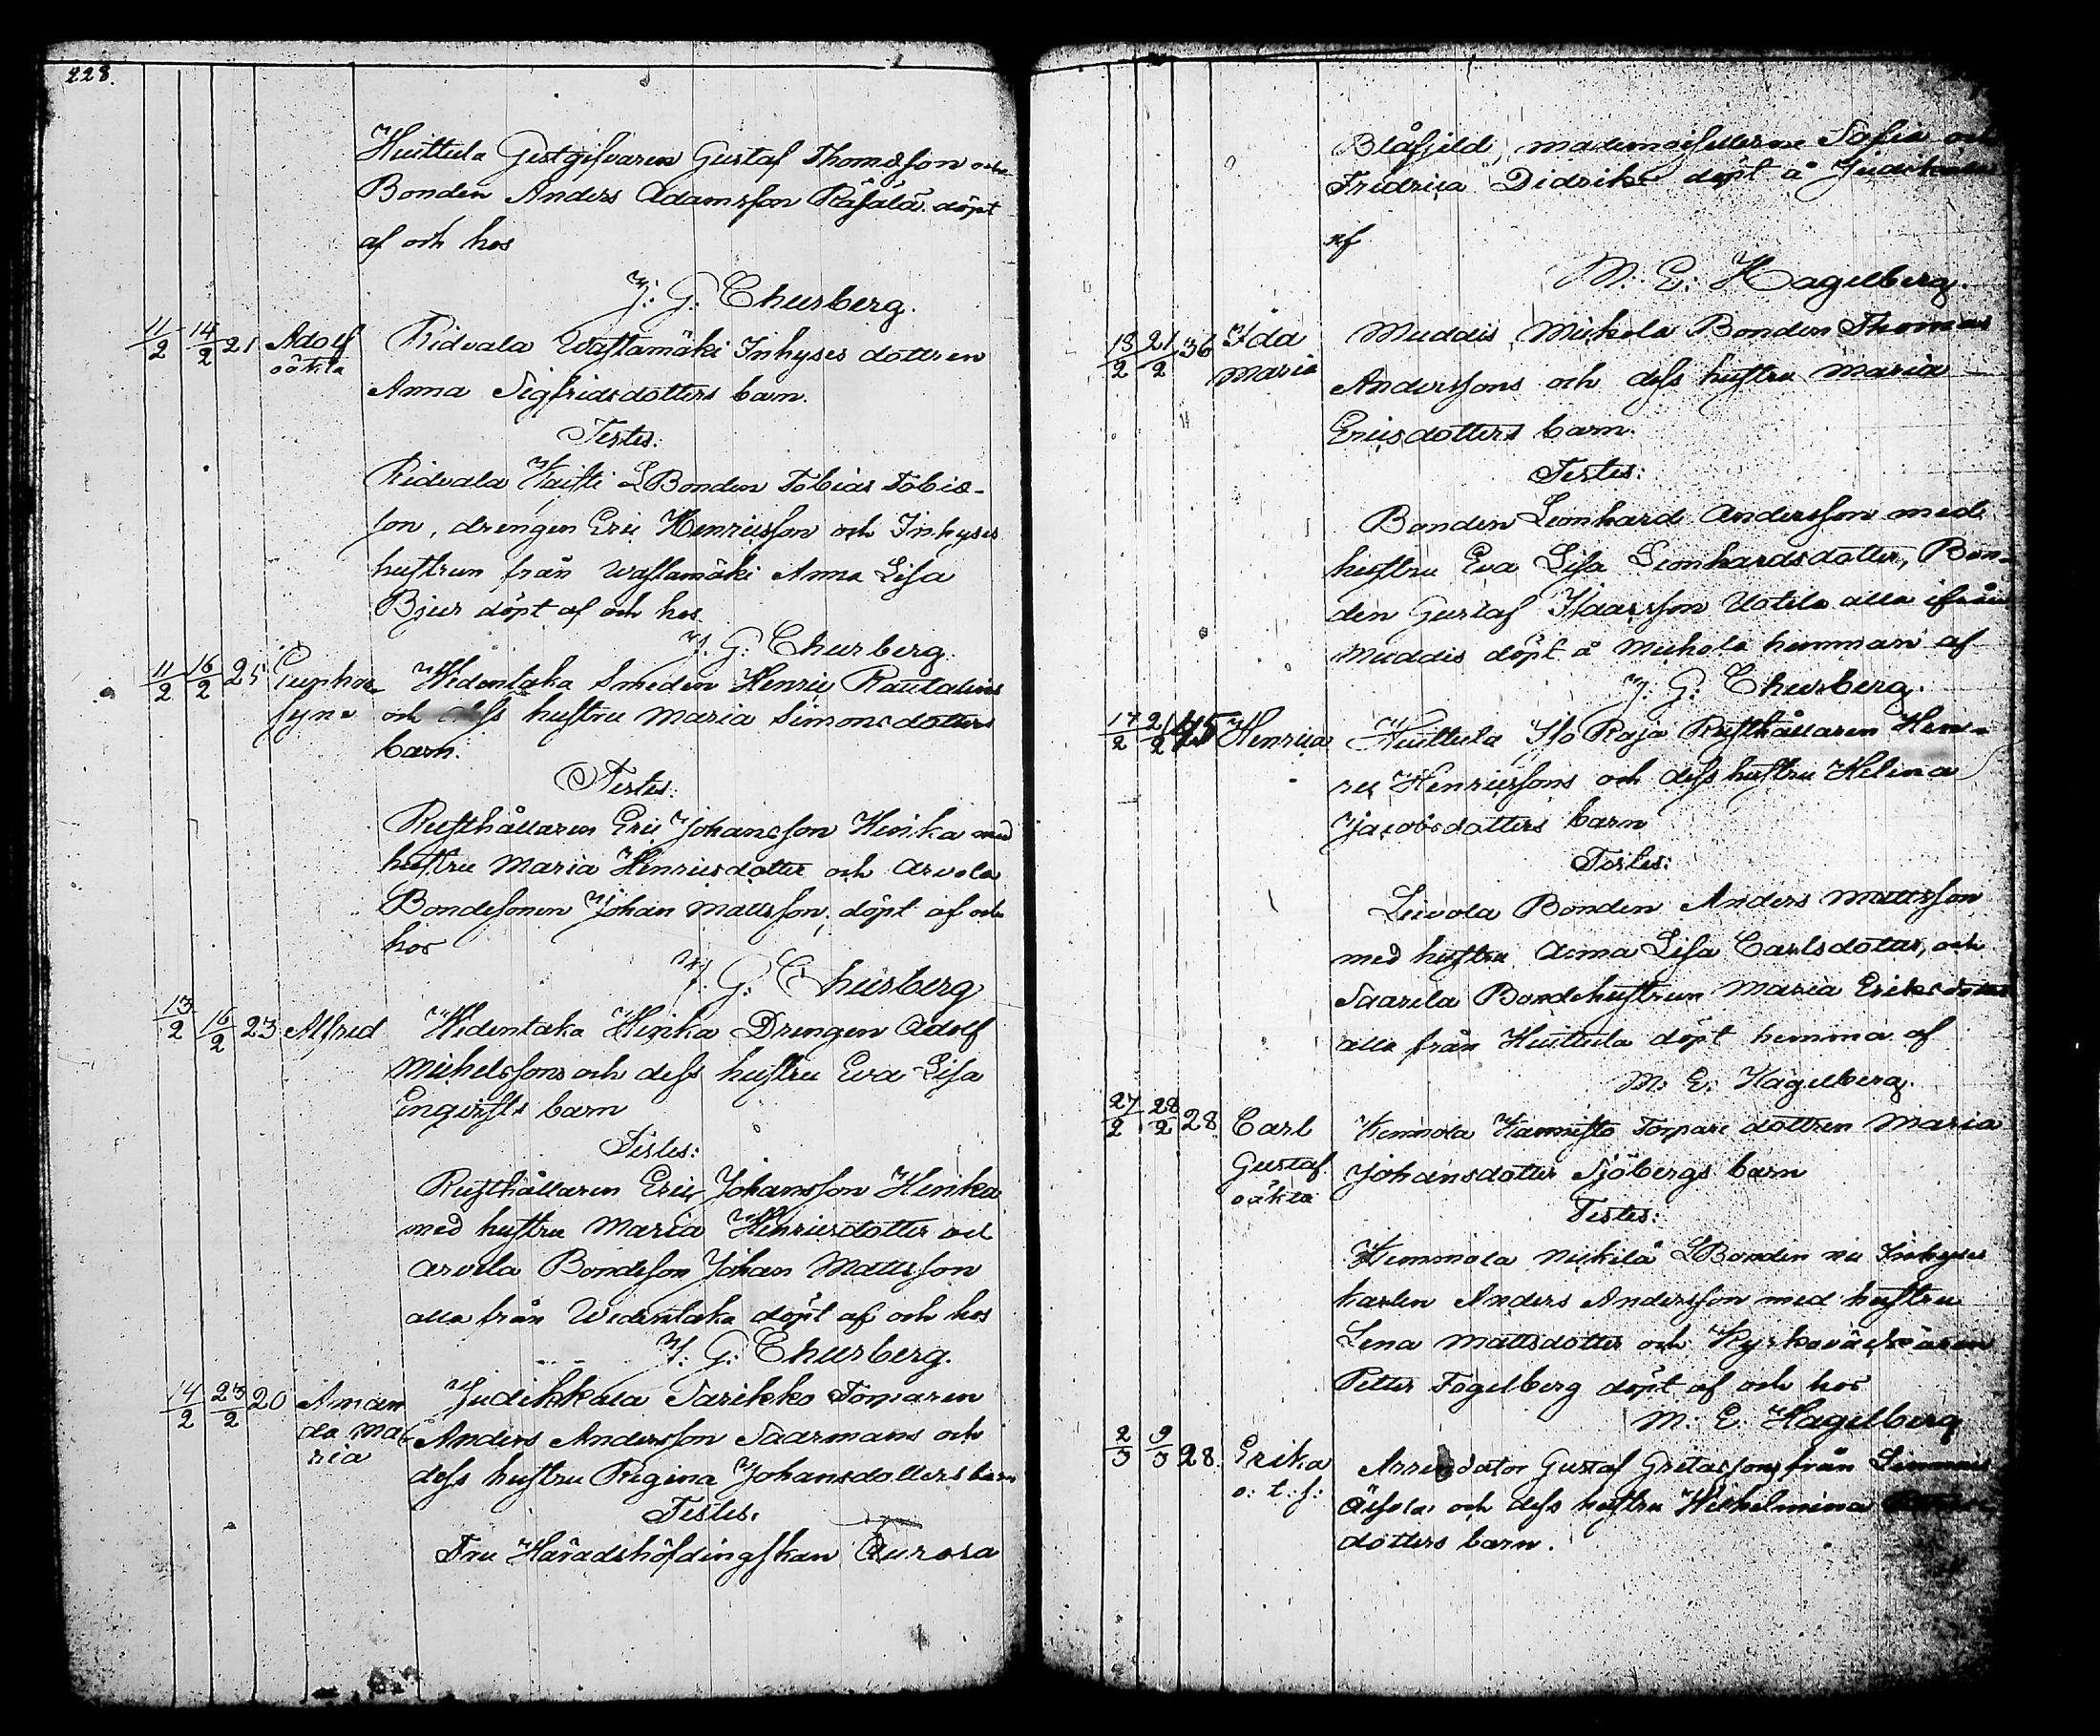 228.
Huittula Gestgifvaren Gustaf Thomasson och
Bonden Anders Adamsson Räfälä döpt
af och hos
J: G: Churberg.
11/2 14/2 21 Adolf Ridvala Wastamäki Inhyses dottren
oäkta Anna Sigfridsdotters barn.
Testes:
Ridvala Kaisti LBonden Tobias Tobias-
son, drengen Eric Henricsson och Inhyses
hustrun från Wastamäki Anna Lisa
Bjur döpt af och hos
J. G: Churberg.
11/2 16/2 25 Euphro- Widentaka Smeden Henric Rautalins
syne och dess hustru Maria Simonsdotters
barn.
Testes:
Rusthållaren Eric Johansson Hinka med
hustru Maria Henricsdotter och Arvola
Bondesonen Johan Mattsson, döpt af och
hos
J. G: Churberg
13/2 16/2 23 Alfred Widentaka Hinka Drengen Adolf
Michelssons och dess hustru Eva Lisa
Engqvists barn
Testes:
Rusthållaren Eric Johansson Hinka
med hustru Maria Henricsdotter och
Arvela Bondeson Johan Mattsson
alla från Widentaka döpt af och hos
J: G: Churberg.
14/2 23/2 20 Aman Judikkala Sarikko Torparen
da Ma Anders Andersson Saarmans och
ria dess hustru Regina Johansdotters barn
Testes.
Fru Häradshöfdingskan Aurora
Blåfjeld, mademoisellerne Sofia och
Fridrica Didrike döpt å Judikkala
af
M: E: Hagelberg.
18/2 21/2 36 Ida Muddis Mickola Bonden Thomas
Maria Anderssons och dess hustru Maria
Ericsdotters barn.
Testes:
Bonden Leonhard Andersson med
hustru Eva Lisa Leonhardsdotter, Bon-
den Gustaf Isaacsson Uotila alla ifrån
Muddis döpt å Mickola hemman af
J: G: Churberg.
17/2 21/2 45 Henrica Huittula Iso Raja Rusthållaren Hen-
ric Henricssons och dess hustru Helena
Jacobsdotters barn
Testes:
Leivola Bonden Anders Mattsson
med hustru Anna Lisa Carlsdotter, och
Saarela Bondehustrun Maria Ericsdotter
alla från Huittula döpt hemma af
M: E: Hagelberg.
27/2 28/2 28. Carl Kemmola Kannisto Torpare dottren Maria
Gustaf Johansdotter Sjöbergs barn
oäkta
Testes:
Kemmola Nickilä LBonden nu Inhyses
karlen Anders Andersson med hustru
Lena Mattsdotter och Kyrkoväktaren
Petter Fogelberg döpt af och hos
M: E: Hagelberg
2/3 9/3 28. Erika Arrendator Gustaf Gretasson från
o: t: f: och dess hustru Wilhelmina
dotters barn.